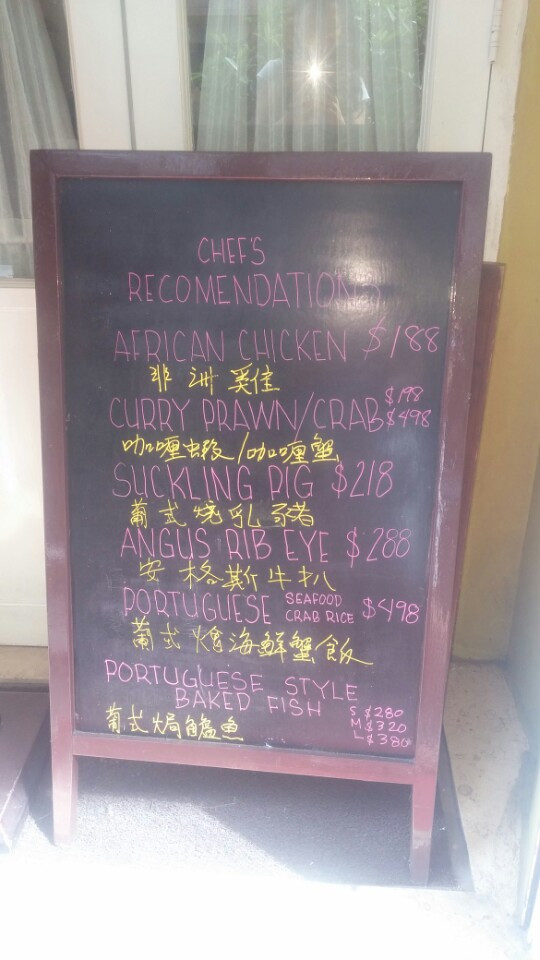 CHEF'S
RECOMENDATIONS
AFRICAN CHICKEN $188
非洲雞
CURRY PRAWN/CRAB $198 $498
咖喱蝦/咖喱蟹
SUCKLING PIG $218
葡式燒乳豬
ANGUS RIB EYE $288
安格斯牛扒
PORTUGUESE SEAFOOD CRAB RICE $498
葡式燴海鮮蟹飯
PORTUGUESE STYLE
BAKED FISH
葡式焗鱸魚
S $280
M $320
L $380